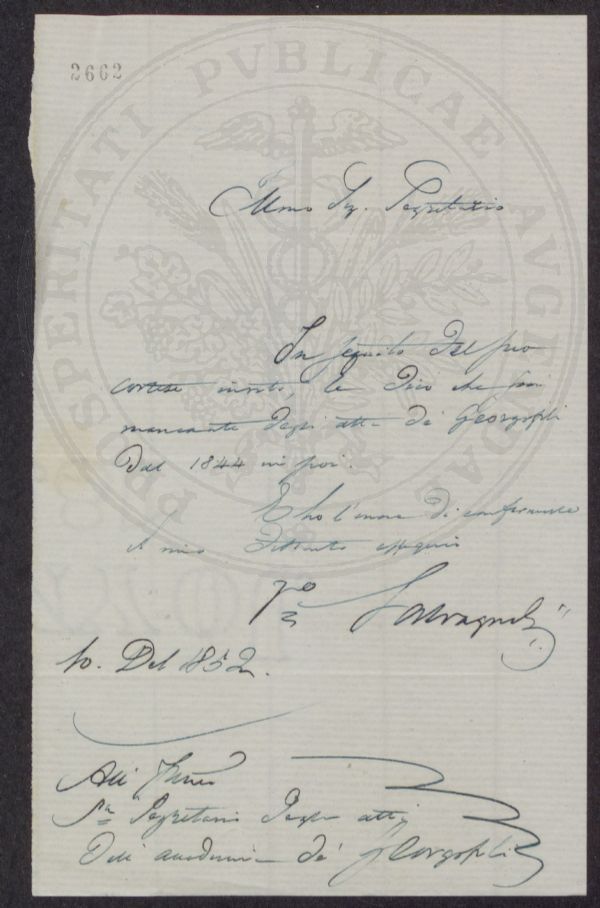 2662
PROSPERITATI PVBLICAE AVGENDAE
Illmo Sig. Segretario
In seguito del suo
cortese invito, le dico che son
mancante degli atti de' Georgofili
dal 1844 in poi.
E ho l'onore di confermarle
il mio distinto ossequio
Salvagnoli
10. Del 1852.
All'
Sr Segretario degli atti
dell' accademia de' Georgofili